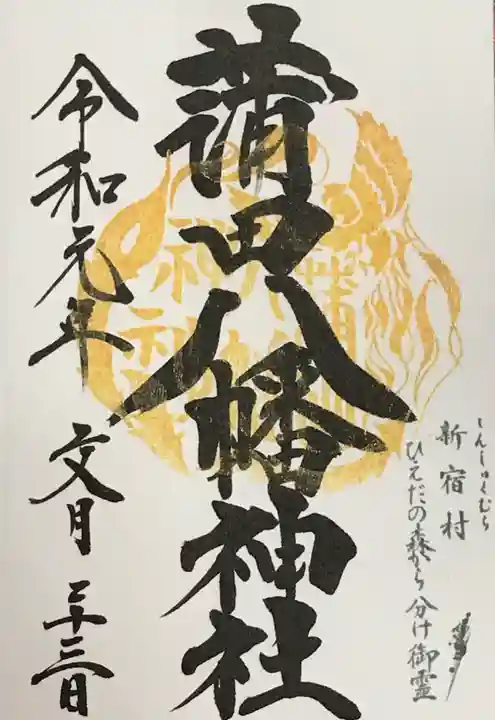 しんしゅくむら
新宿村
ひえだの森から分け御霊
蒲田八幡神社
令和元年 文月 二十三日